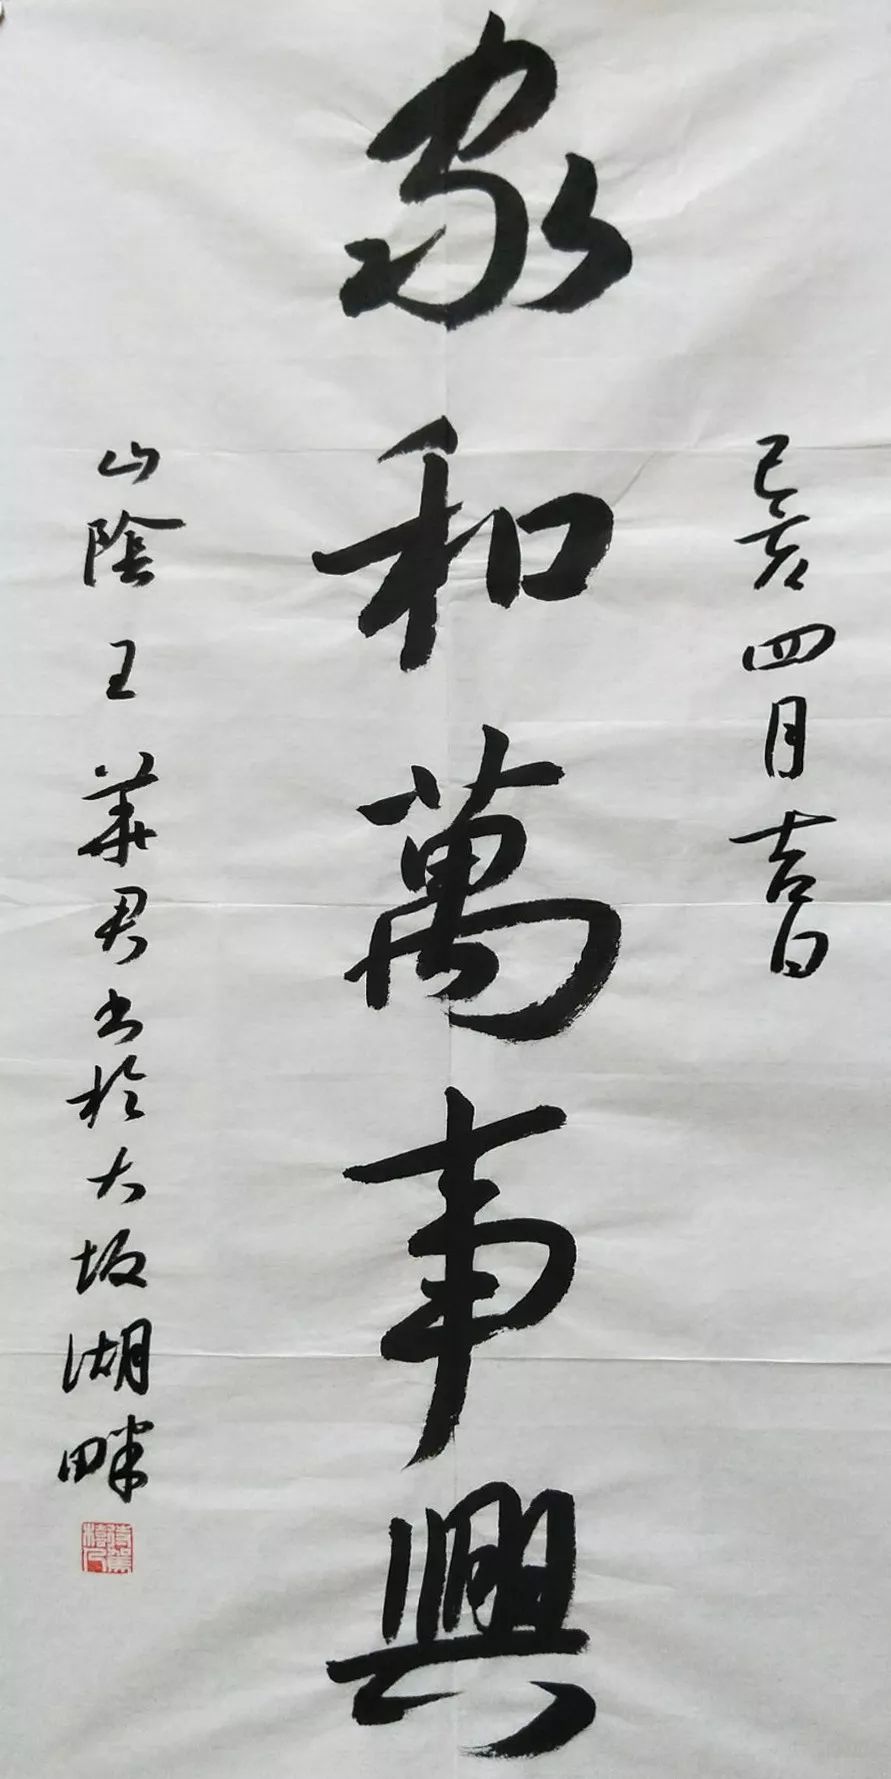 己亥四月吉日
家和萬事興
山陰王華君书於大坂湖畔